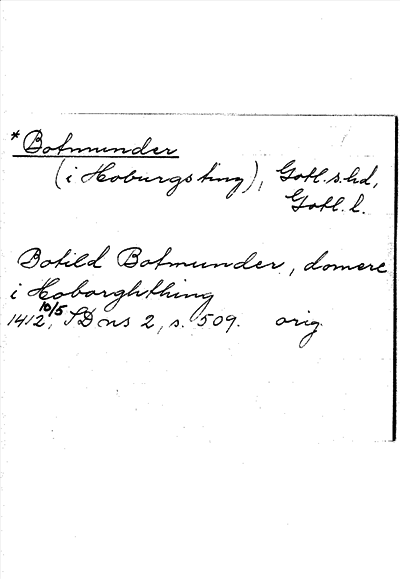 *Botmunder
(i Hoburgs ting), Gotl. s. hd,
Gotl. l.
Botild Botmunder, domere
i Hoborghthing
1412 10/5, SD ns 2, s. 509. orig.